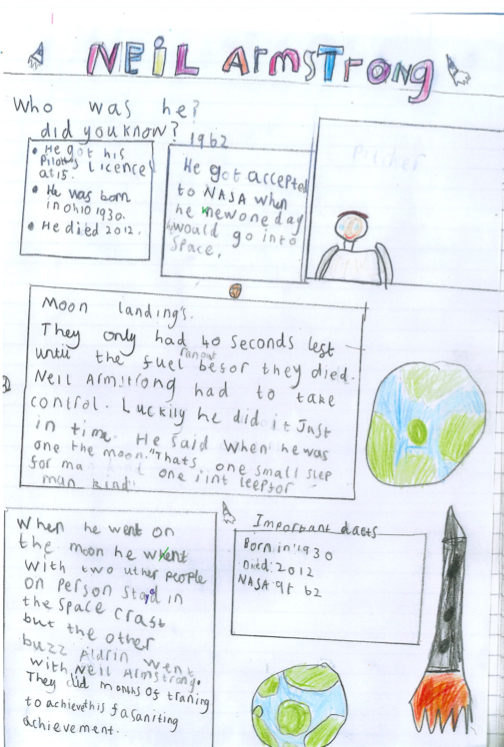 NEiL ArmsTrong
Who was he?
did you know?
• He got his
Pilots Licence
at 15.
• He was born
in ohio 1930.
• He died 2012.
1962
He got accepted
to NASA when
he knew one day
he would go into
Space.
Pitcher
Moon landing's.
They only had 40 seconds left
until the fuel ran out befor they died.
Neil Armstrong had to take
control. Luckily he did it Just
in time. He said when he was
one the moon. "Thats one small step
for man one leep for
man kind
When he went on
the moon he went
with two uther people
on person stayd in
the space craft
but the other
buzz Aldrin went
with Neil Armstrong.
They did months of traning
to achieve this fasaniting
achievement.
Important facts
Born in 1930
Died: 2012
NASA 62